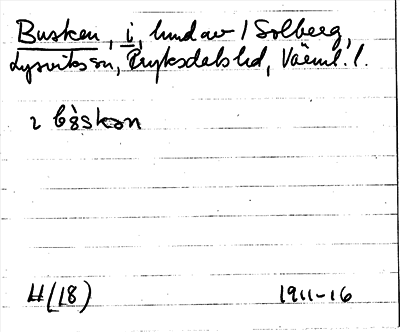 Busken, i, hmd av 1 Solberg,
Lysviks sn, Fryksdals hd, Värml. l.
2 bùskan
H(18) 1911-16